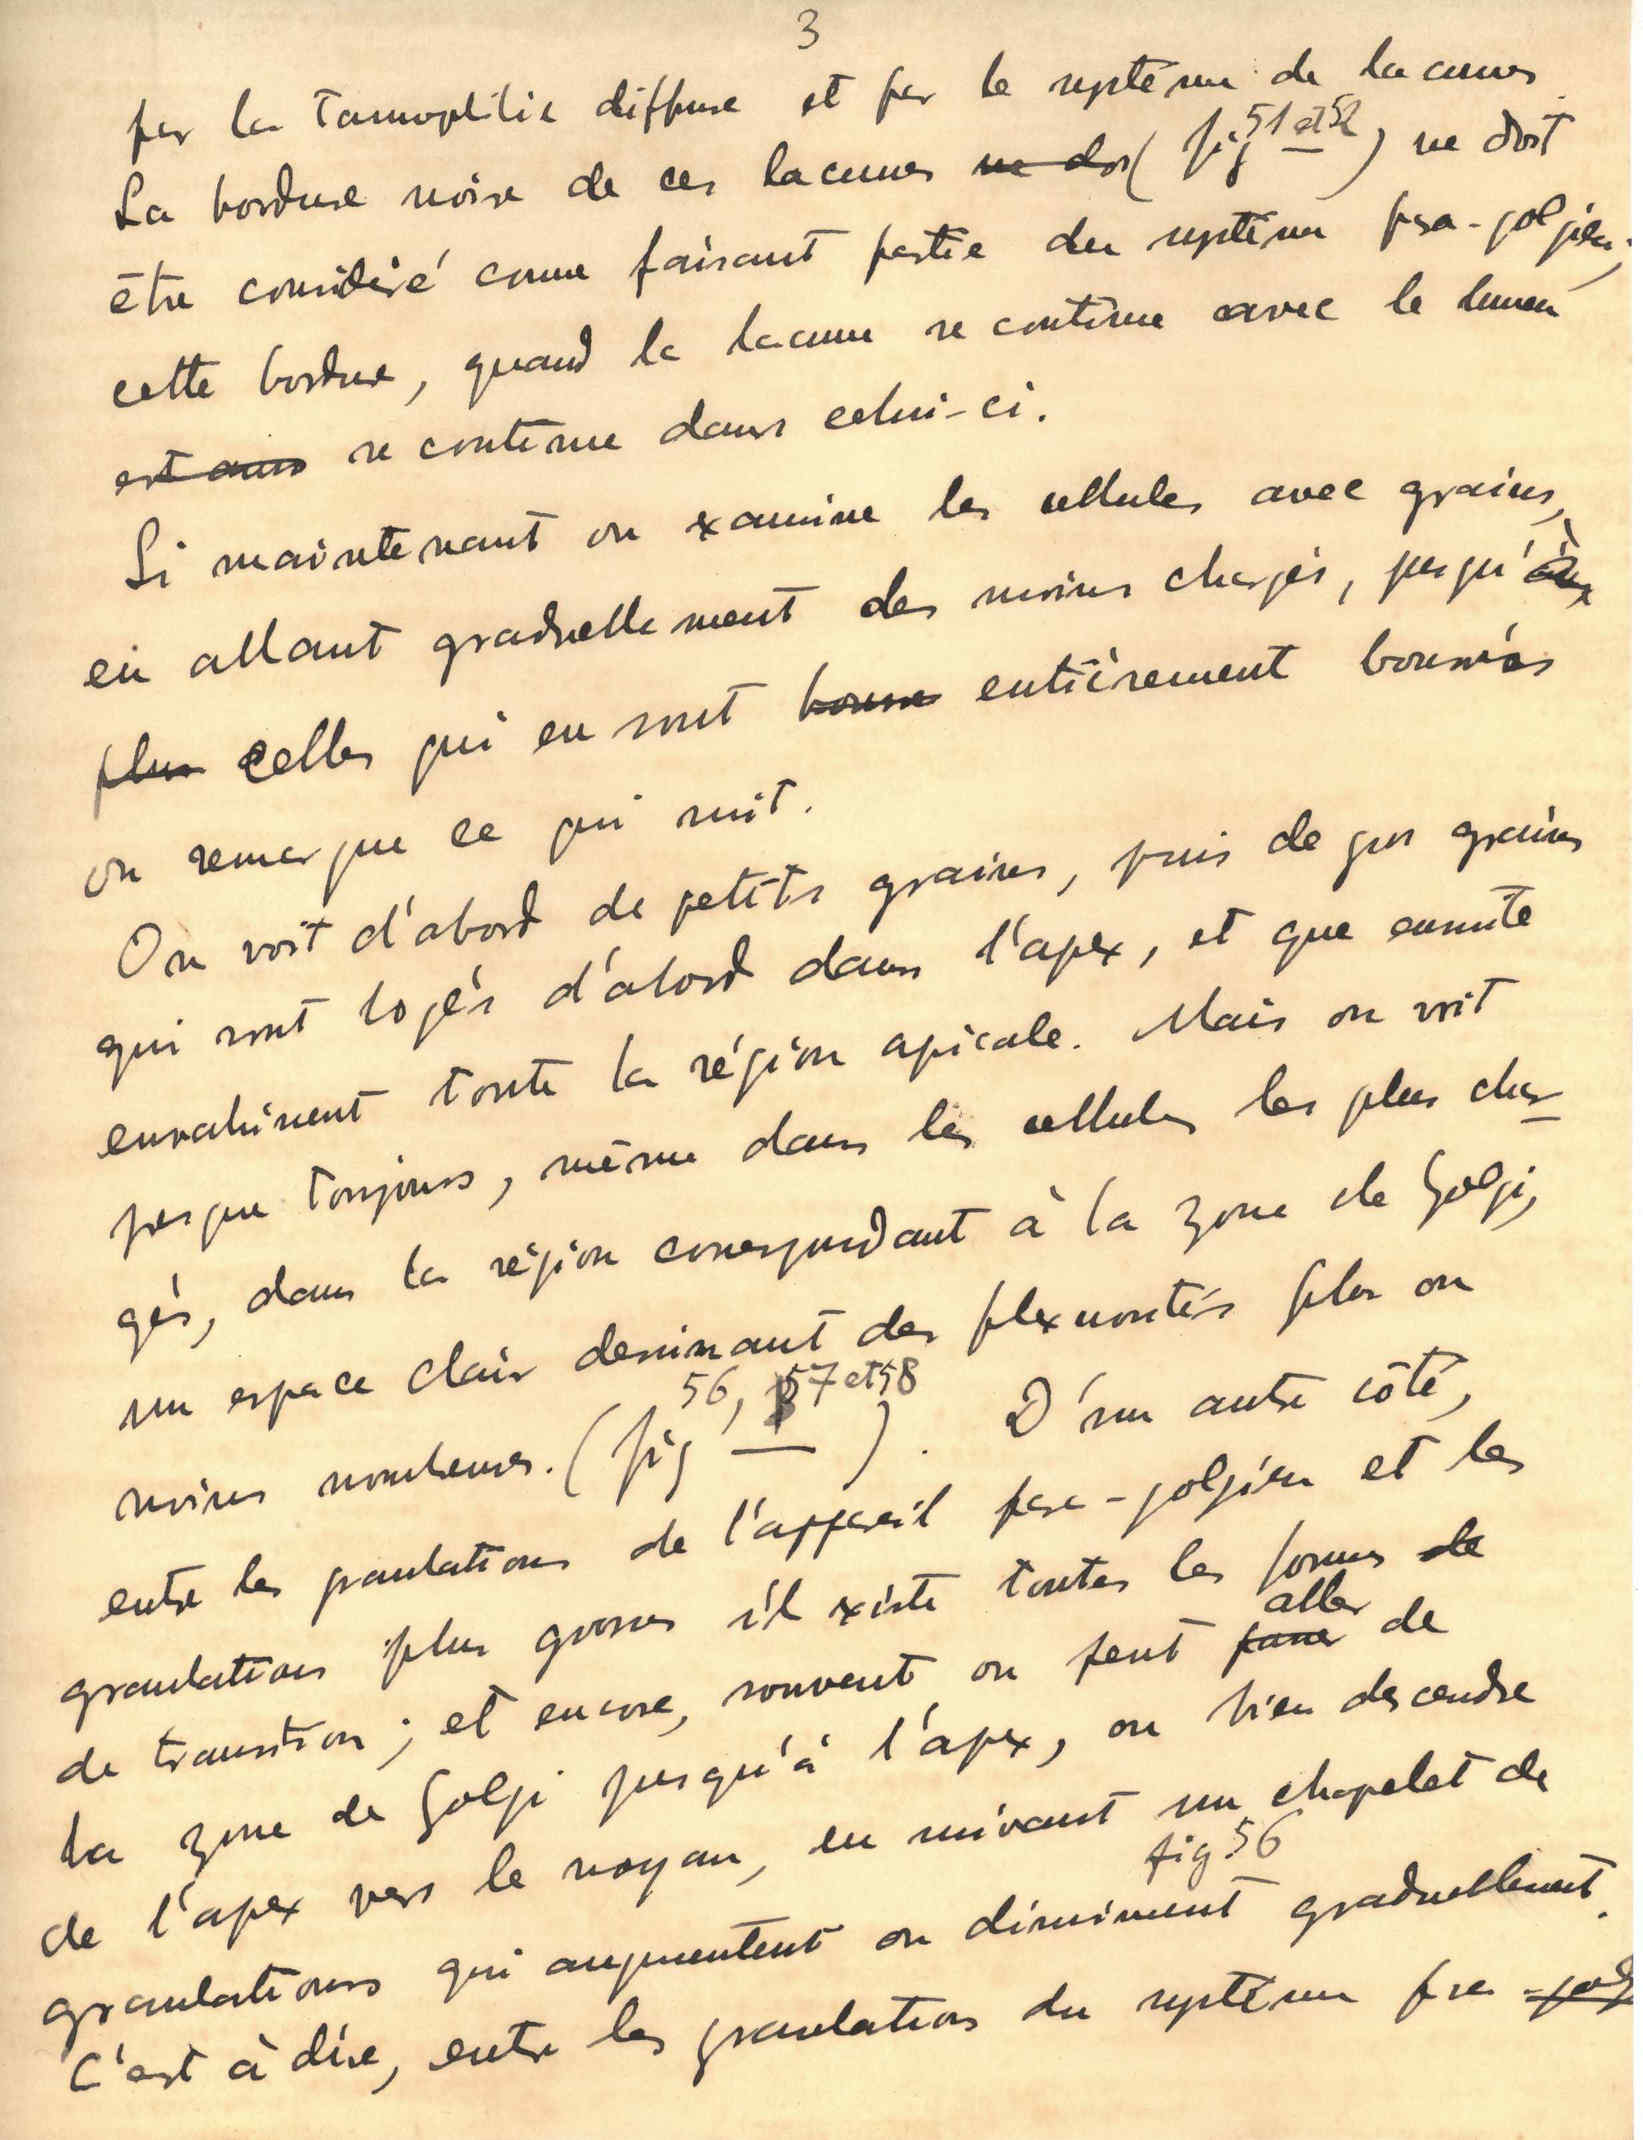 3
par la tannophilie diffuse et par le système de lacunes.
La bordure noire de ces lacunes ne doi (fig 51 et 52) ne doit
être considéré comme faisant partie du système para-golgien;
cette bordure, quand la lacune se continue avec le lumen
est aussi se continue dans celui-ci.
Si maintenant on examine les cellules avec grains,
en allant graduellement des moins chargés, jusqu'à
plus celles qui en sont bourré entièrement bourrés
on remarque ce qui suit.
On voit d'abord de petits grains, puis de gros grains
qui sont logés d'abord dans l'apex, et que ensuite
envahissent toute la région apicale. Mais on voit
presque toujours, même dans les cellules les plus char-
gés, dans la région correspondant à la zone de Golgi,
un espace clair dessinant des flexuosités plus ou
moins nombreuses. (fig 56, 57 et 58). D'un autre côté,
entre les granulations de l'appareil para-golgien et les
granulations plus grosses il existe toutes les formes de
de transition; et encore, souvent on peut passer aller de
la zone de Golgi jusqu'à l'apex, ou bien descendre
de l'apex vers le noyau, en suivant un chapelet de
fig 56
granulations qui augmentent ou diminuent graduellement.
C'est à dire, entre les granulations du système para-golg